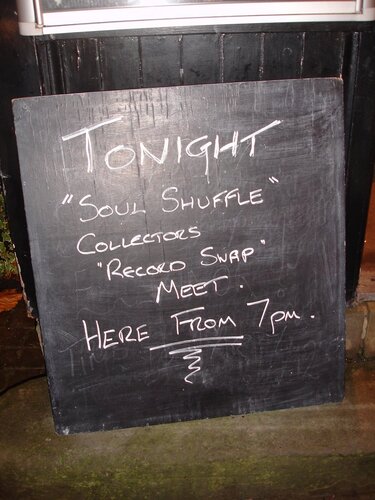 TONIGHT
"SOUL SHUFFLE"
COLLECTORS
"RECORD SWAP"
MEET.
HERE FROM 7pm.